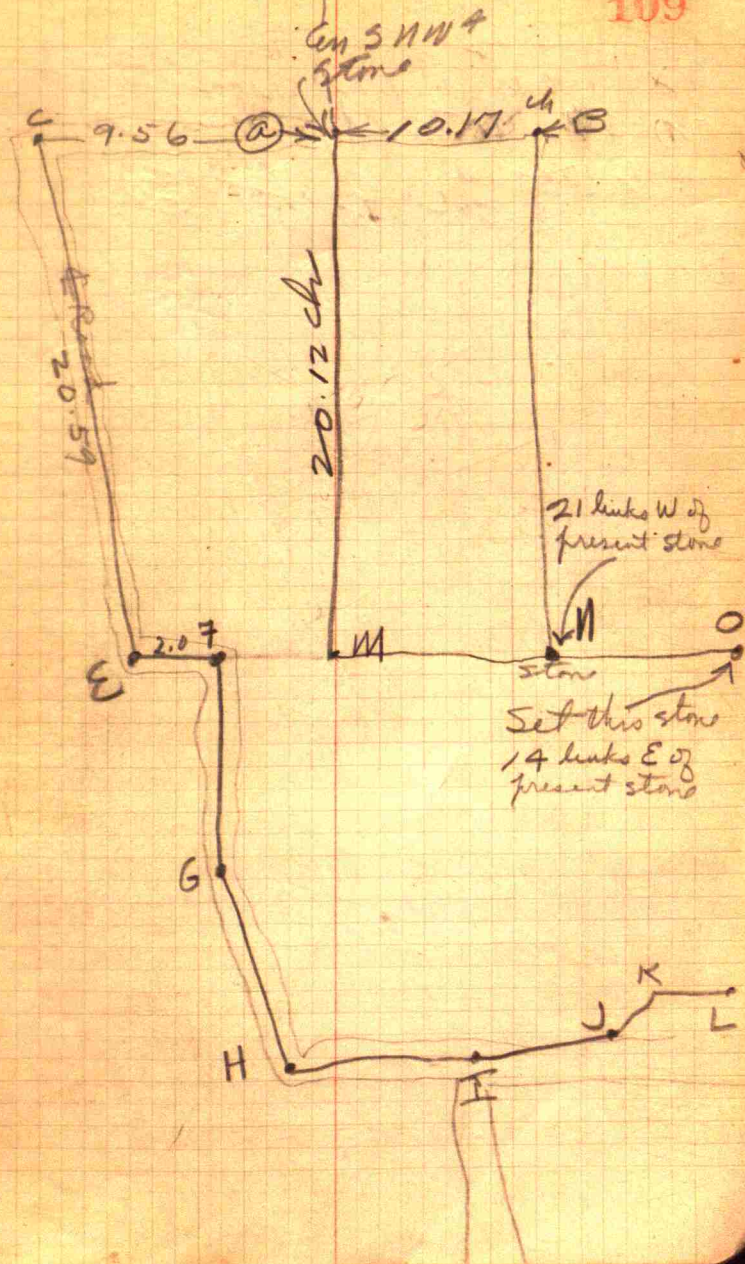 109
Cen S NW 4
Stone
C 9.56 @ 10.17 ch B
20.12 ch
20.59
21 links W of
present stone
E 2.0 7 M N O
stone
Set this stone
14 links E of
present stone
G
K
J L
H I